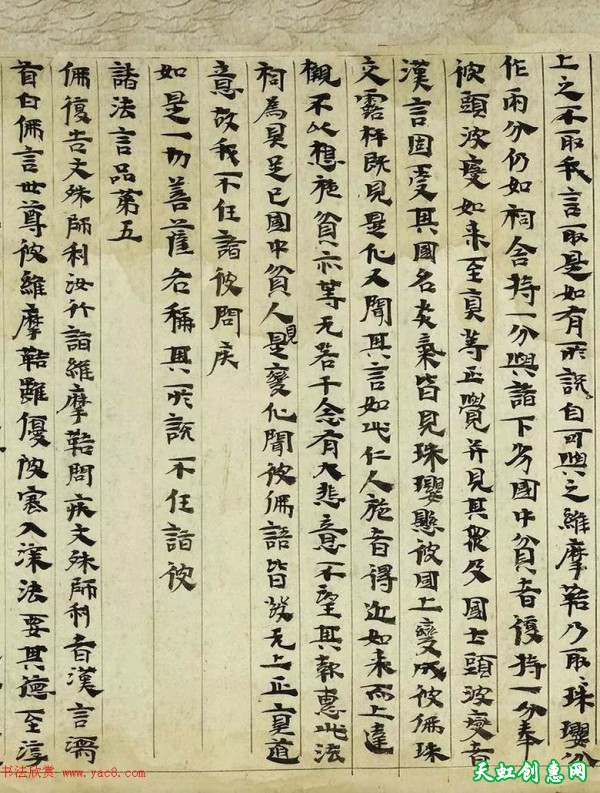 上之不取我言取是如有所說自可與之維摩詰乃取珠瓔分
作兩分仍如祠舍持一分與諸下劣國中貧者復持一分奉
彼頭波變如来至真等正覺并見其眾及國土頭波變者
漢言固受其國名炎氣皆見珠瓔懸彼國上變成彼佛珠
交露棓既見是化又聞其言如此仁人施者得近如来而上達
櫬不以想施貧亦等无若干念有大悲意不望其報惠此法
祠為具足已國中貧人見是變化聞彼佛語皆發无上正真道
意故我不任詣彼問疾
如是一切菩薩各稱其所說不任詣彼
諸法言品第五
佛復告文殊師利汝行詣維摩詰問疾文殊師利者漢言濡
首白佛言世尊彼維摩詰雖優波塞入深法要其德至淳
书法欣赏 www.yac8.com
天虹创惠网